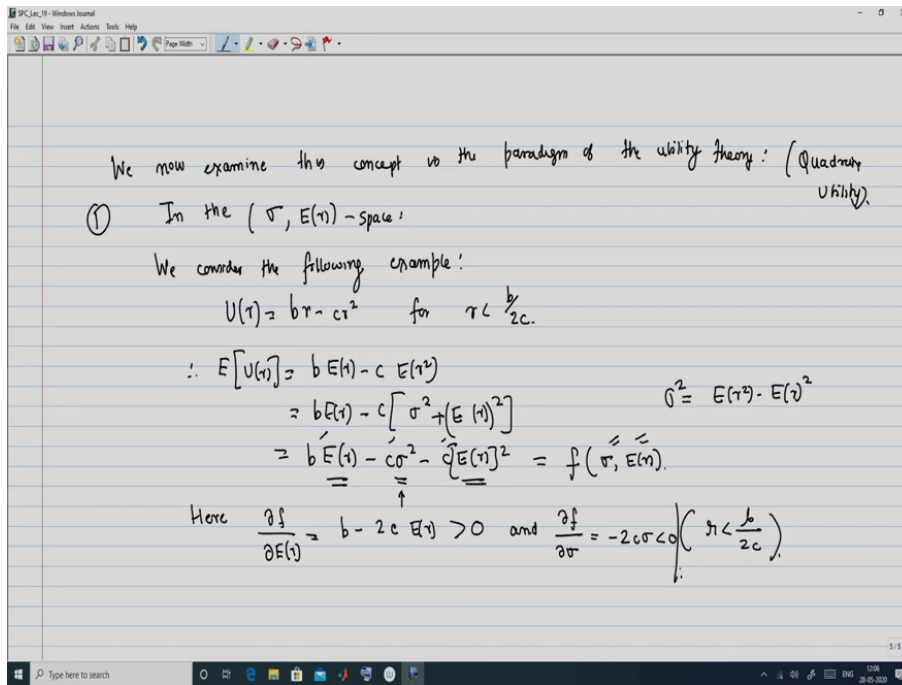 SPC_Lec_19 - Windows Journal
File Edit View Insert Actions Tools Help
Page Width
We now examine this concept vs the paradigm of the utility theory: (Quadratic
Utility).
① In the (σ, E(r) - space:
We consider the following example:
U(r) = br - cr² for r < b/2c.
∴ E[U(r)] = b E(r) - c E(r²)
= bE(r) - c[σ² + (E(r))²]
σ² = E(r²) - E(r)²
= b E(r) - cσ² - c[E(r)]² = f(σ, E(r).
Here ∂f/∂E(r) = b - 2c E(r) > 0 and ∂f/∂σ = -2cσ < 0 | (r < b/2c).
5/5
Type here to search
ENG
12:06
28-05-2020